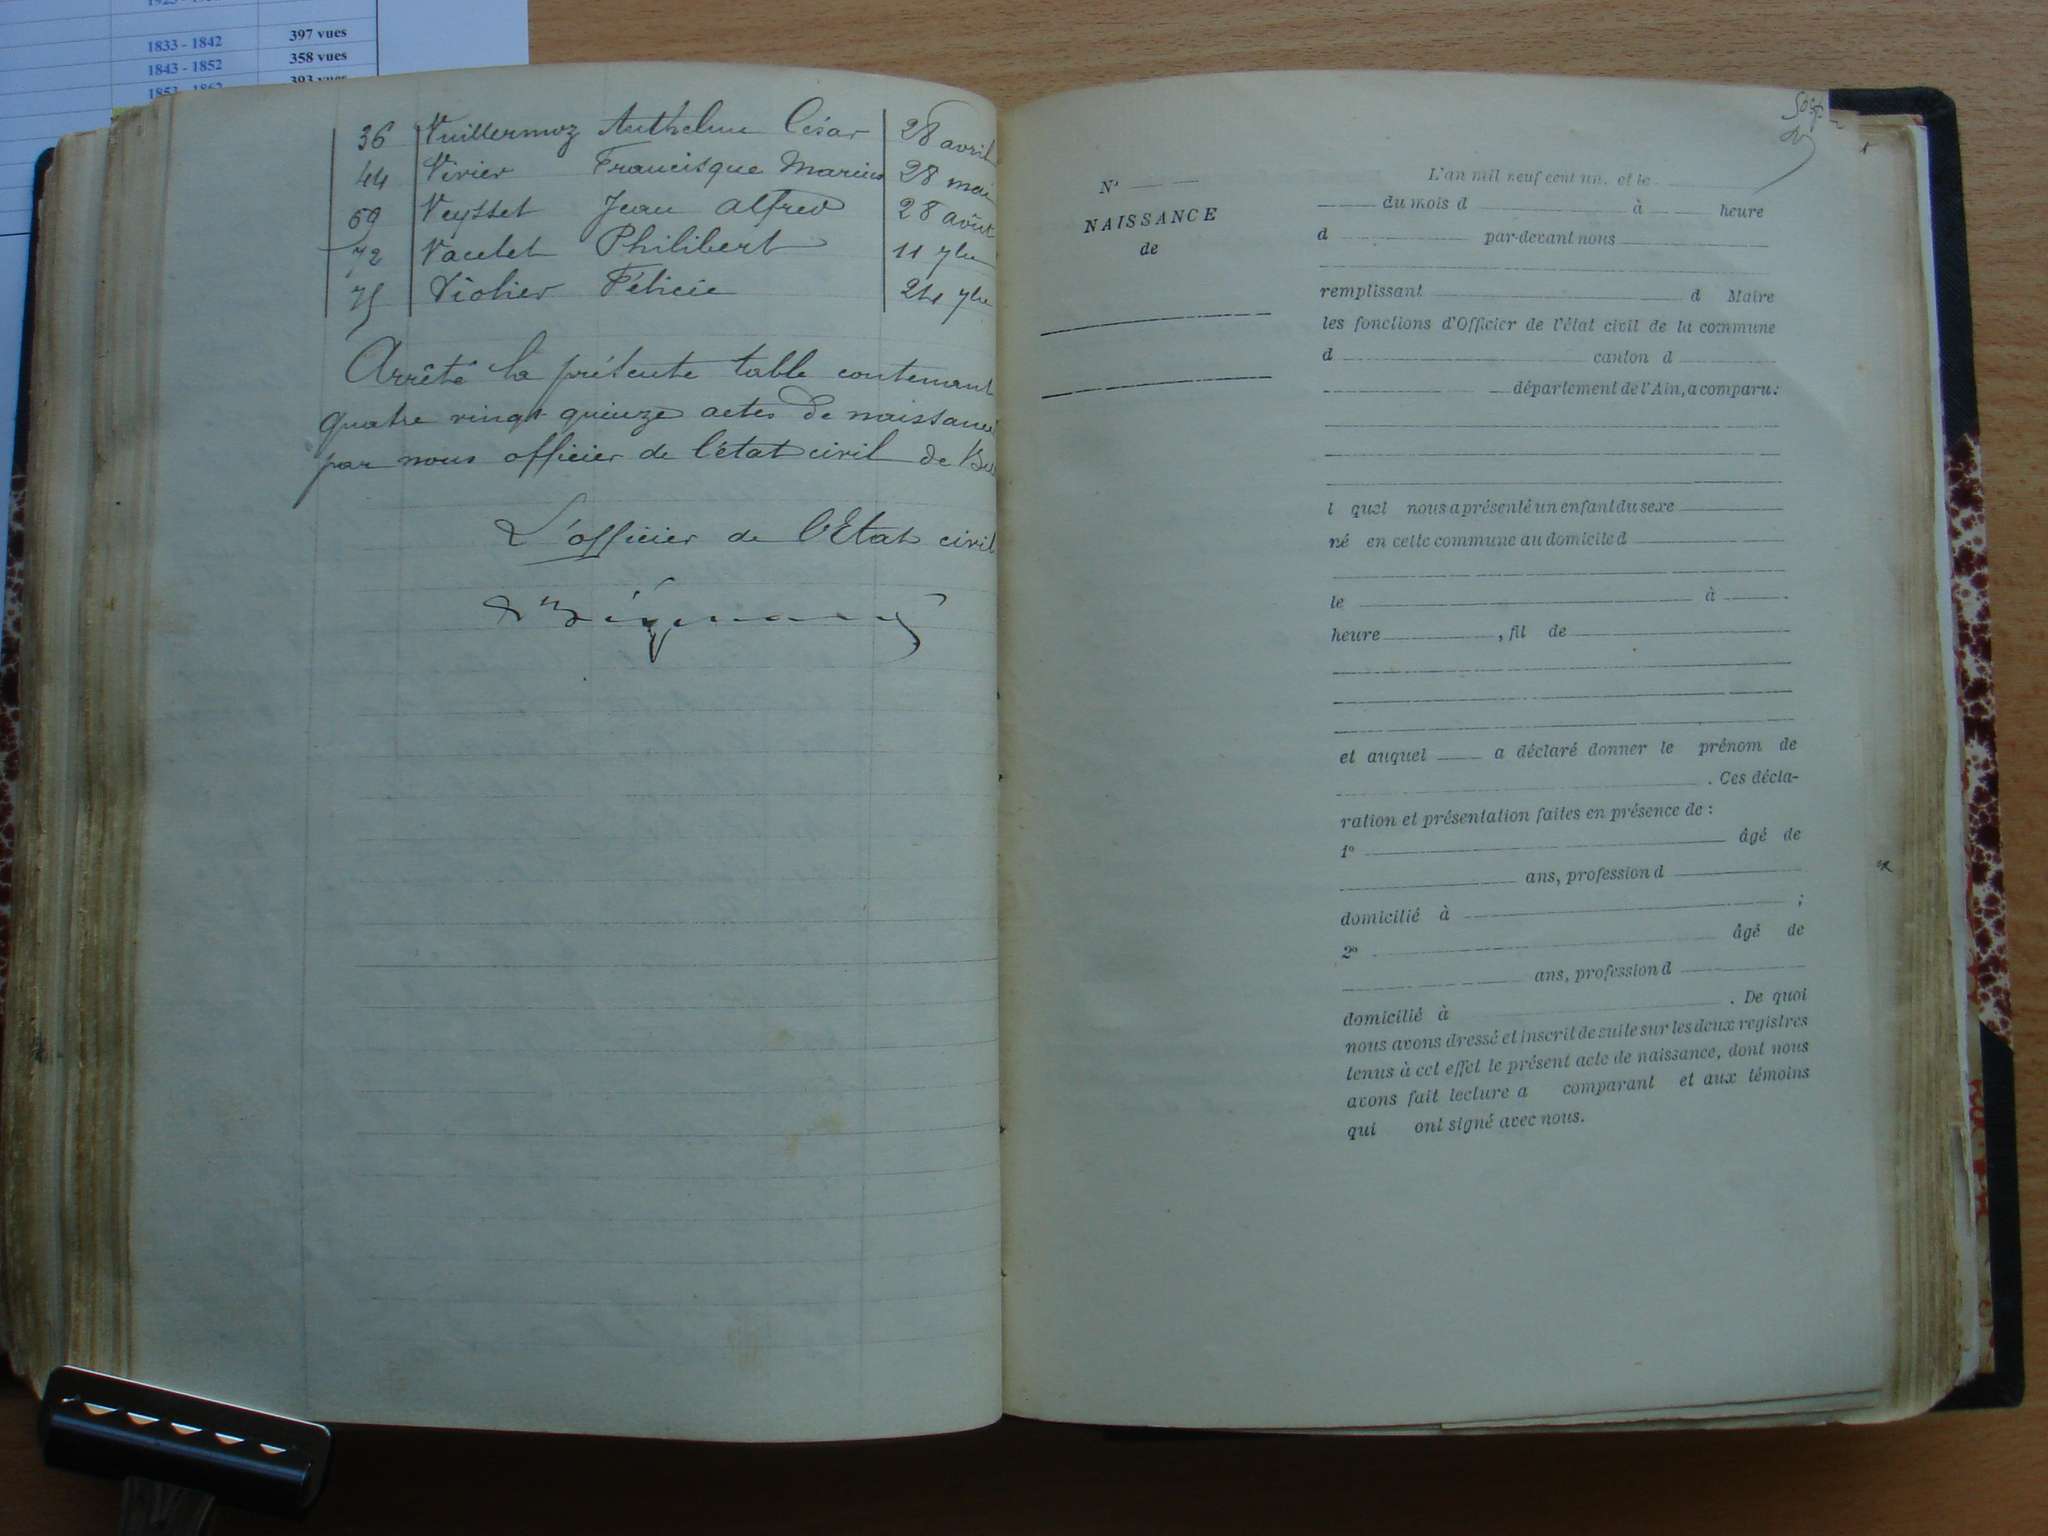 1833 - 1842 397 vues
1843 - 1852 358 vues
1853 - 1862 393 vues
36 Vuillermoz Anthelme César 28 avril
44 Vivier Francisque Marius 28 mai
69 Veysset Jean Alfred 28 août
72 Vacelet Philibert 11 7bre
75 Violier Félicie 24 7bre
Arrêté la présente table contenant
quatre vingt quinze actes de naissance
par nous officier de l'état civil de
L'officier de l'Etat civil
N°
NAISSANCE
de
L'an mil neuf cent un, et le
du mois d à heure
d par-devant nous
remplissant d Maire
les fonctions d'Officier de l'état civil de la commune
d canton d
département de l'Ain, a comparu:
l quel nous a présenté un enfant du sexe
né en cette commune au domicile d
le à
heure , fil de
et auquel a déclaré donner le prénom de
. Ces décla-
ration et présentation faites en présence de :
1° âgé de
ans, profession d
domicilié à ;
2° âgé de
ans, profession d
domicilié à . De quoi
nous avons dressé et inscrit de suite sur les deux registres
tenus à cet effet le présent acte de naissance, dont nous
avons fait lecture a comparant et aux témoins
qui ont signé avec nous.